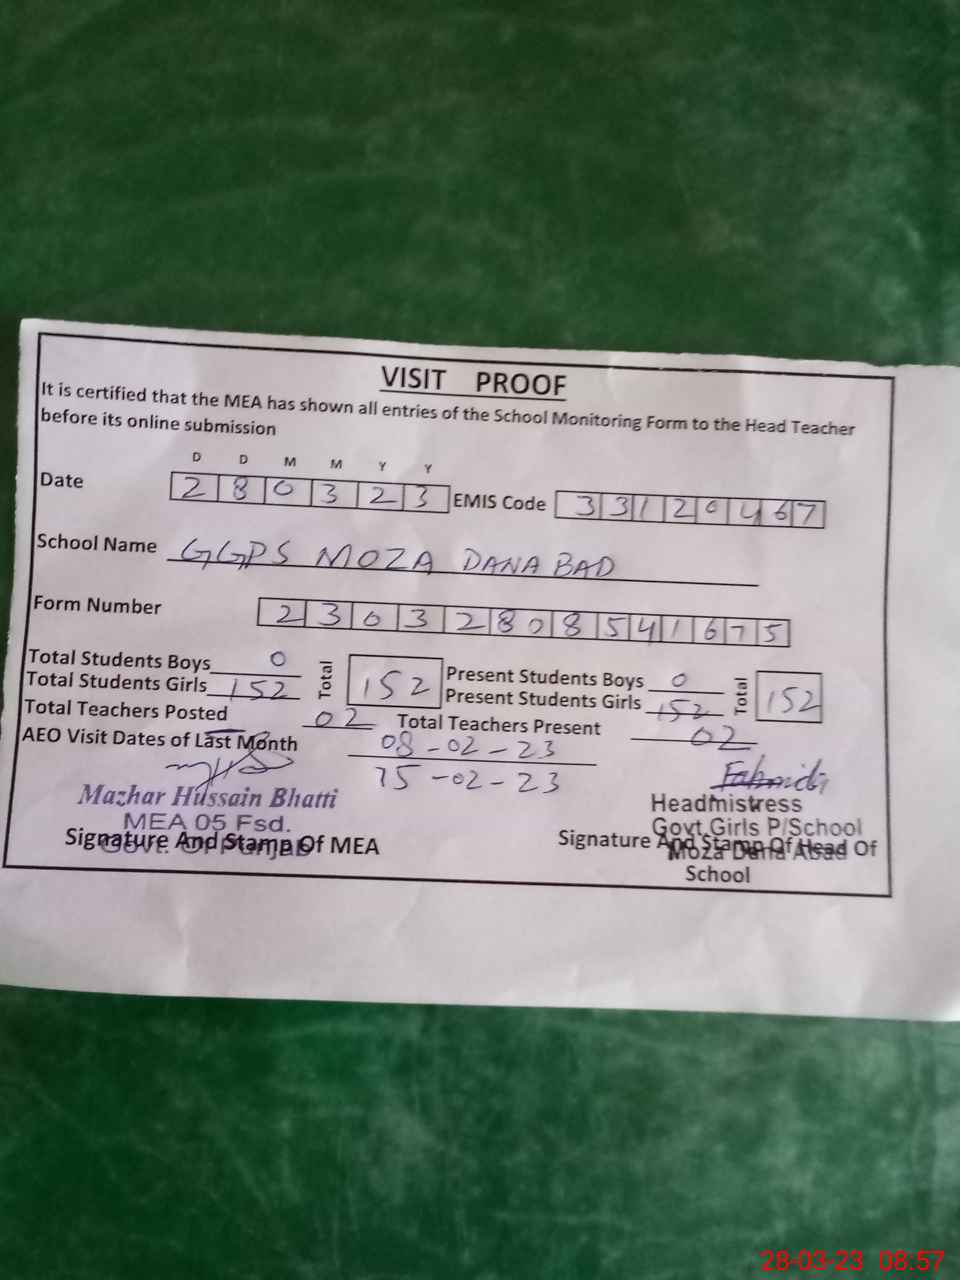 VISIT PROOF
It is certified that the MEA has shown all entries of the School Monitoring Form to the Head Teacher
before its online submission
D D M M Y Y
Date 2 8 0 3 2 3 EMIS Code 3 3 1 2 0 4 6 7
School Name GGPS MOZA DANA BAD
Form Number 2 3 0 3 2 8 0 8 5 4 1 6 7 5
Total Students Boys 0 Total 152 Present Students Boys 0 Total 152
Total Students Girls 152 Present Students Girls 152
Total Teachers Posted 02 Total Teachers Present 02
AEO Visit Dates of Last Month 08-02-23
15-02-23
Mazhar Hussain Bhatti
MEA 05 Fsd.
Govt. Of Punjab
Signature And Stamp Of MEA
Headmistress
Govt Girls P/School
Moza Dana Abad
Signature And Stamp Of Head Of
School
28-03-23 08:57